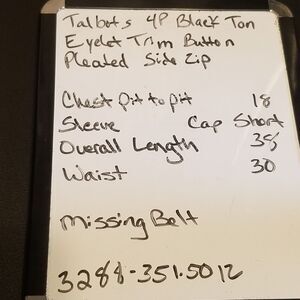 Talbots 4P Black Tan
Eyelet Trim Button
Pleated Side Zip
Chest pit to pit 18
Sleeve Cap Short
Overall Length 38
Waist 30
Missing Belt
3288-351.50 12